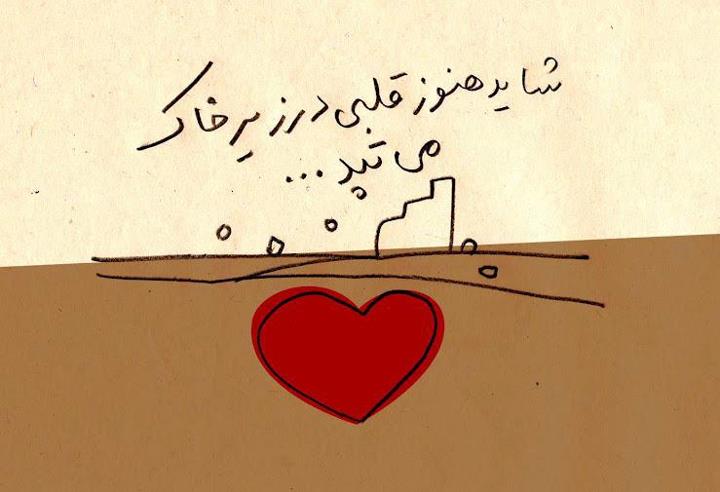 شاید هنوز قلبی در زیر خاک
می تپد...